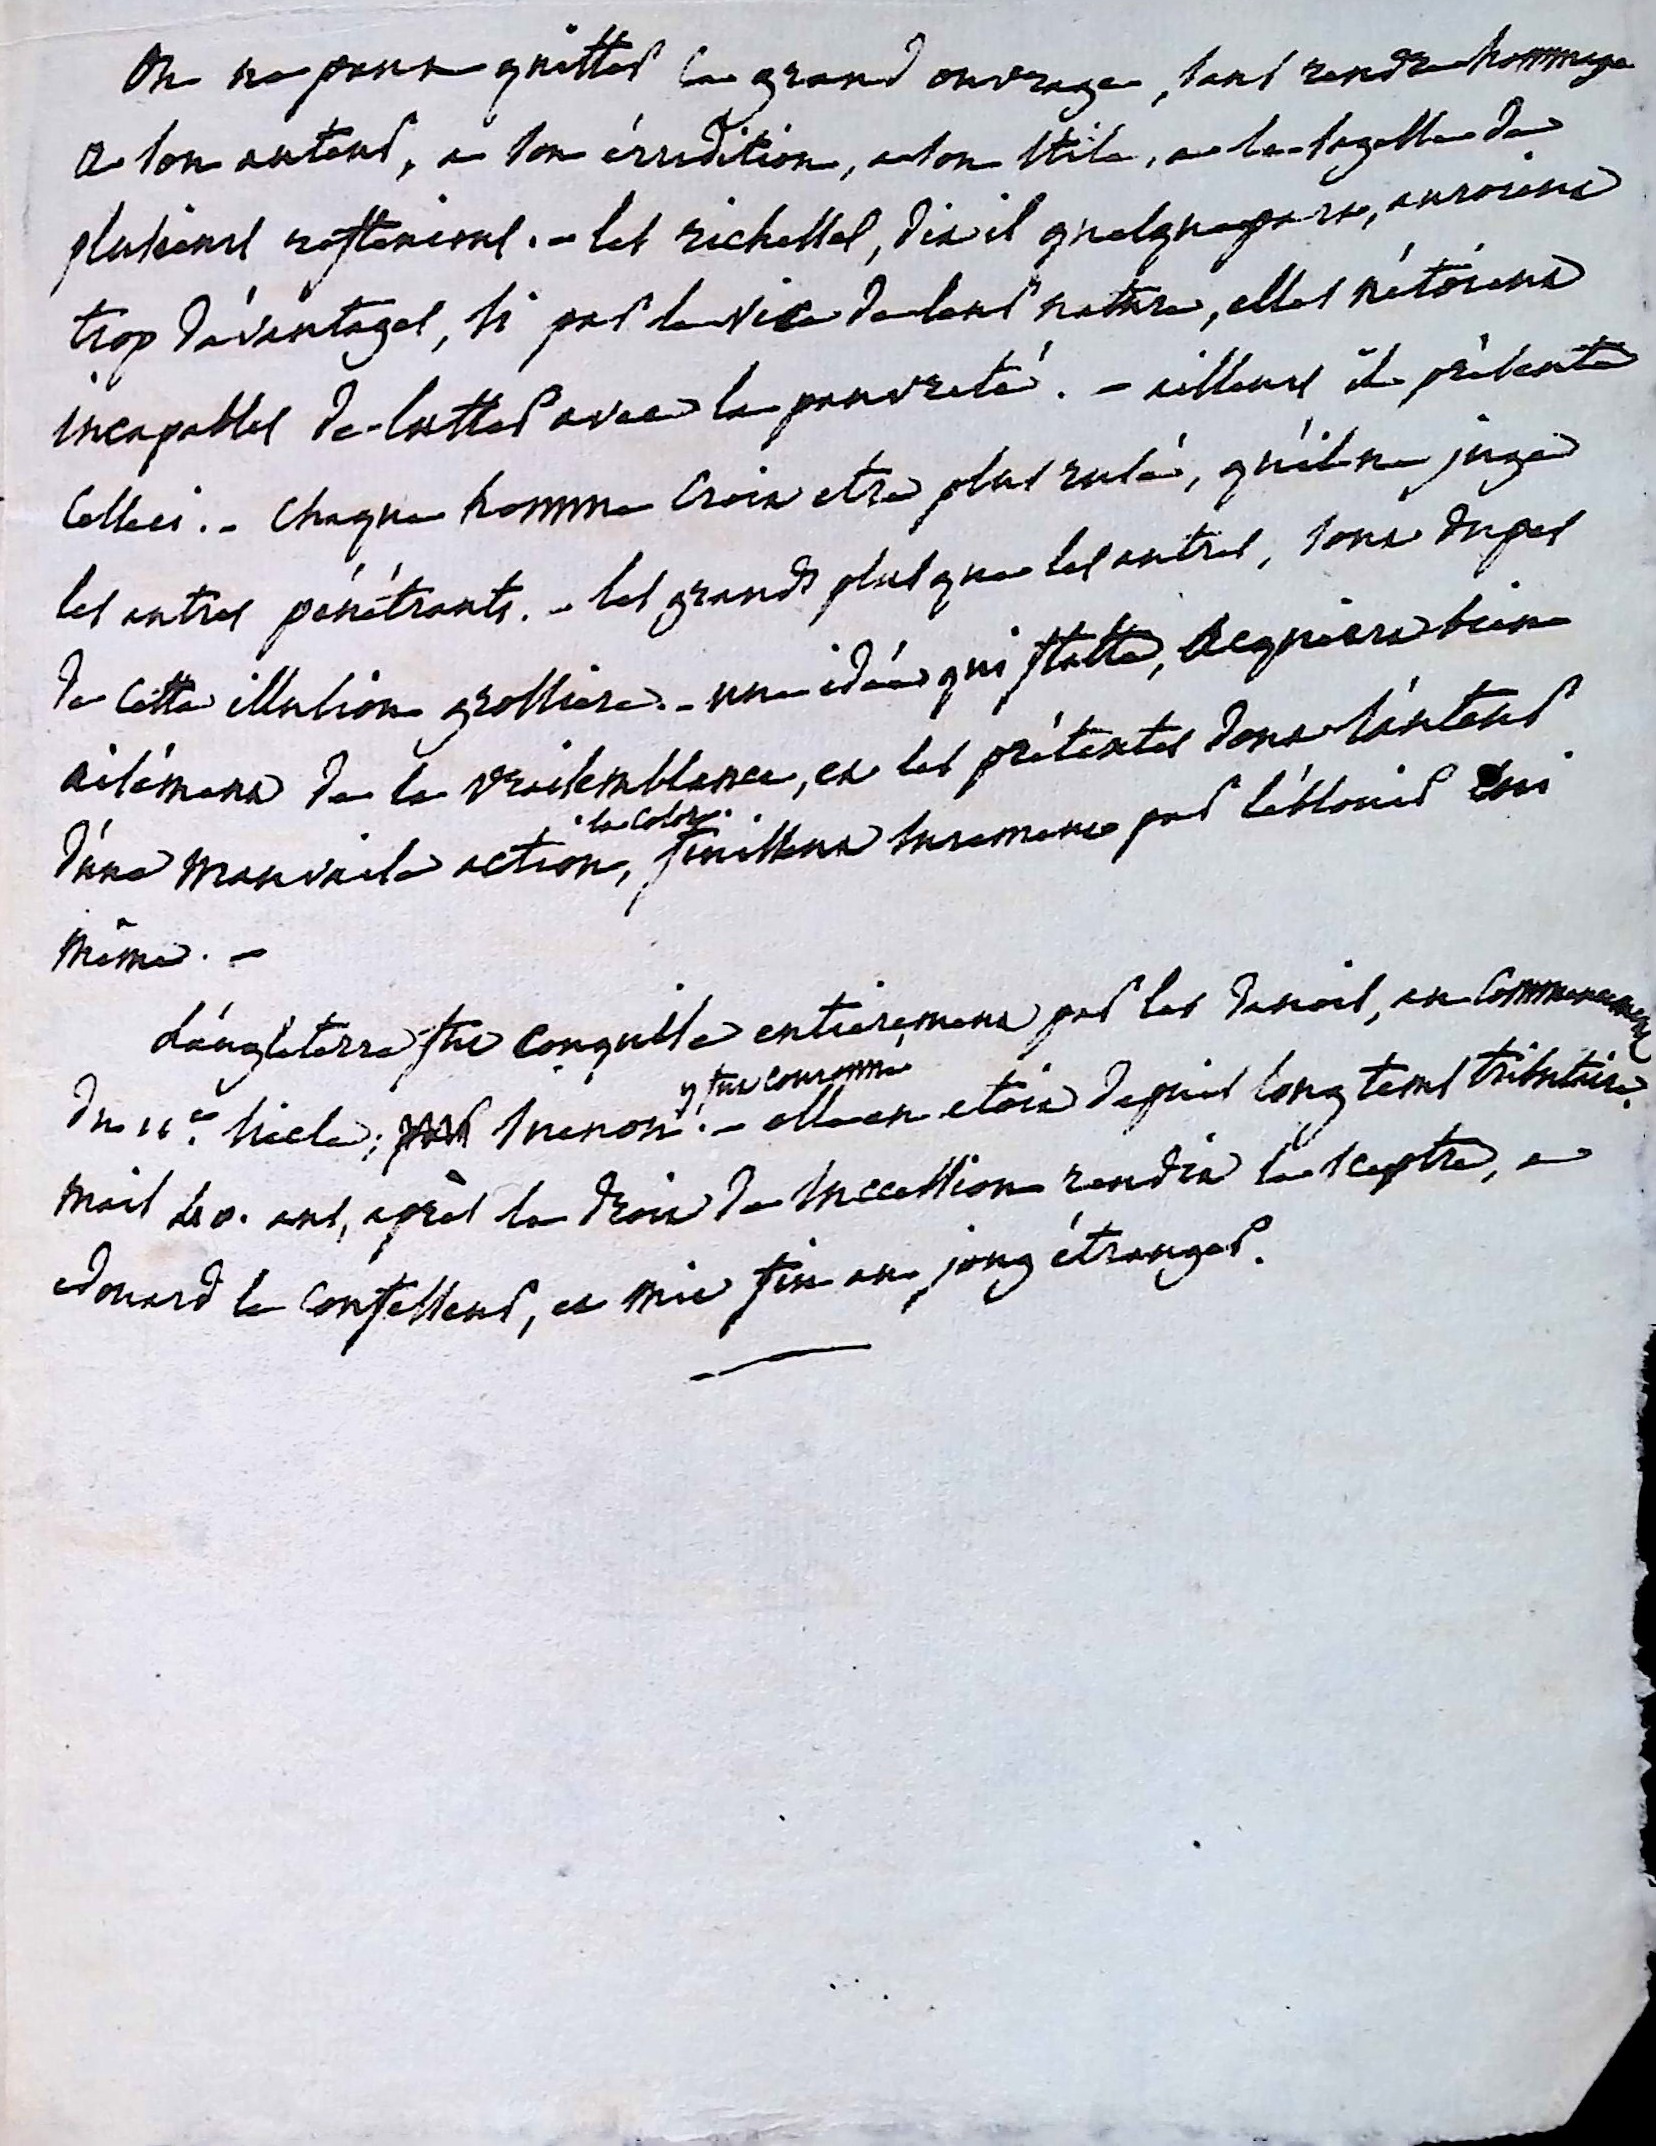 On ne peut quitter ce grand ouvrage, sans rendre hommage
a son auteur, a son érrudition, a son stile, a la sagesse de
plusieurs reflexions. - les richesses, dit il quelque part, auroient
trop d'avantages, si par le vice de leur nature, elles n'étoient
incapables de lutter avec la pauvreté. - ailleurs il présente
celleci. - chaque homme croit etre plus rusé, qu'il ne juge
les autres pénétrants. - les grands plus que les autres, sont dupes
de cette illusion grossiere. - une idée qui flatte, acquiert bien
aisément de la vraisemblance, et les prétextes dont l'auteur
. la colore .
d'une mauvaise action, finissent surement par l'éblouir lui
même. -
L'angleterre fut conquise entierement par les danois, au commencement
y fut couronné
du 11e. siecle; suenon. - elle en etoit depuis long tems tributaire.
mais 40. ans, après le droit de succession rendit le sceptre, a
edouard le confesseur, et mit fin au joug étranger.